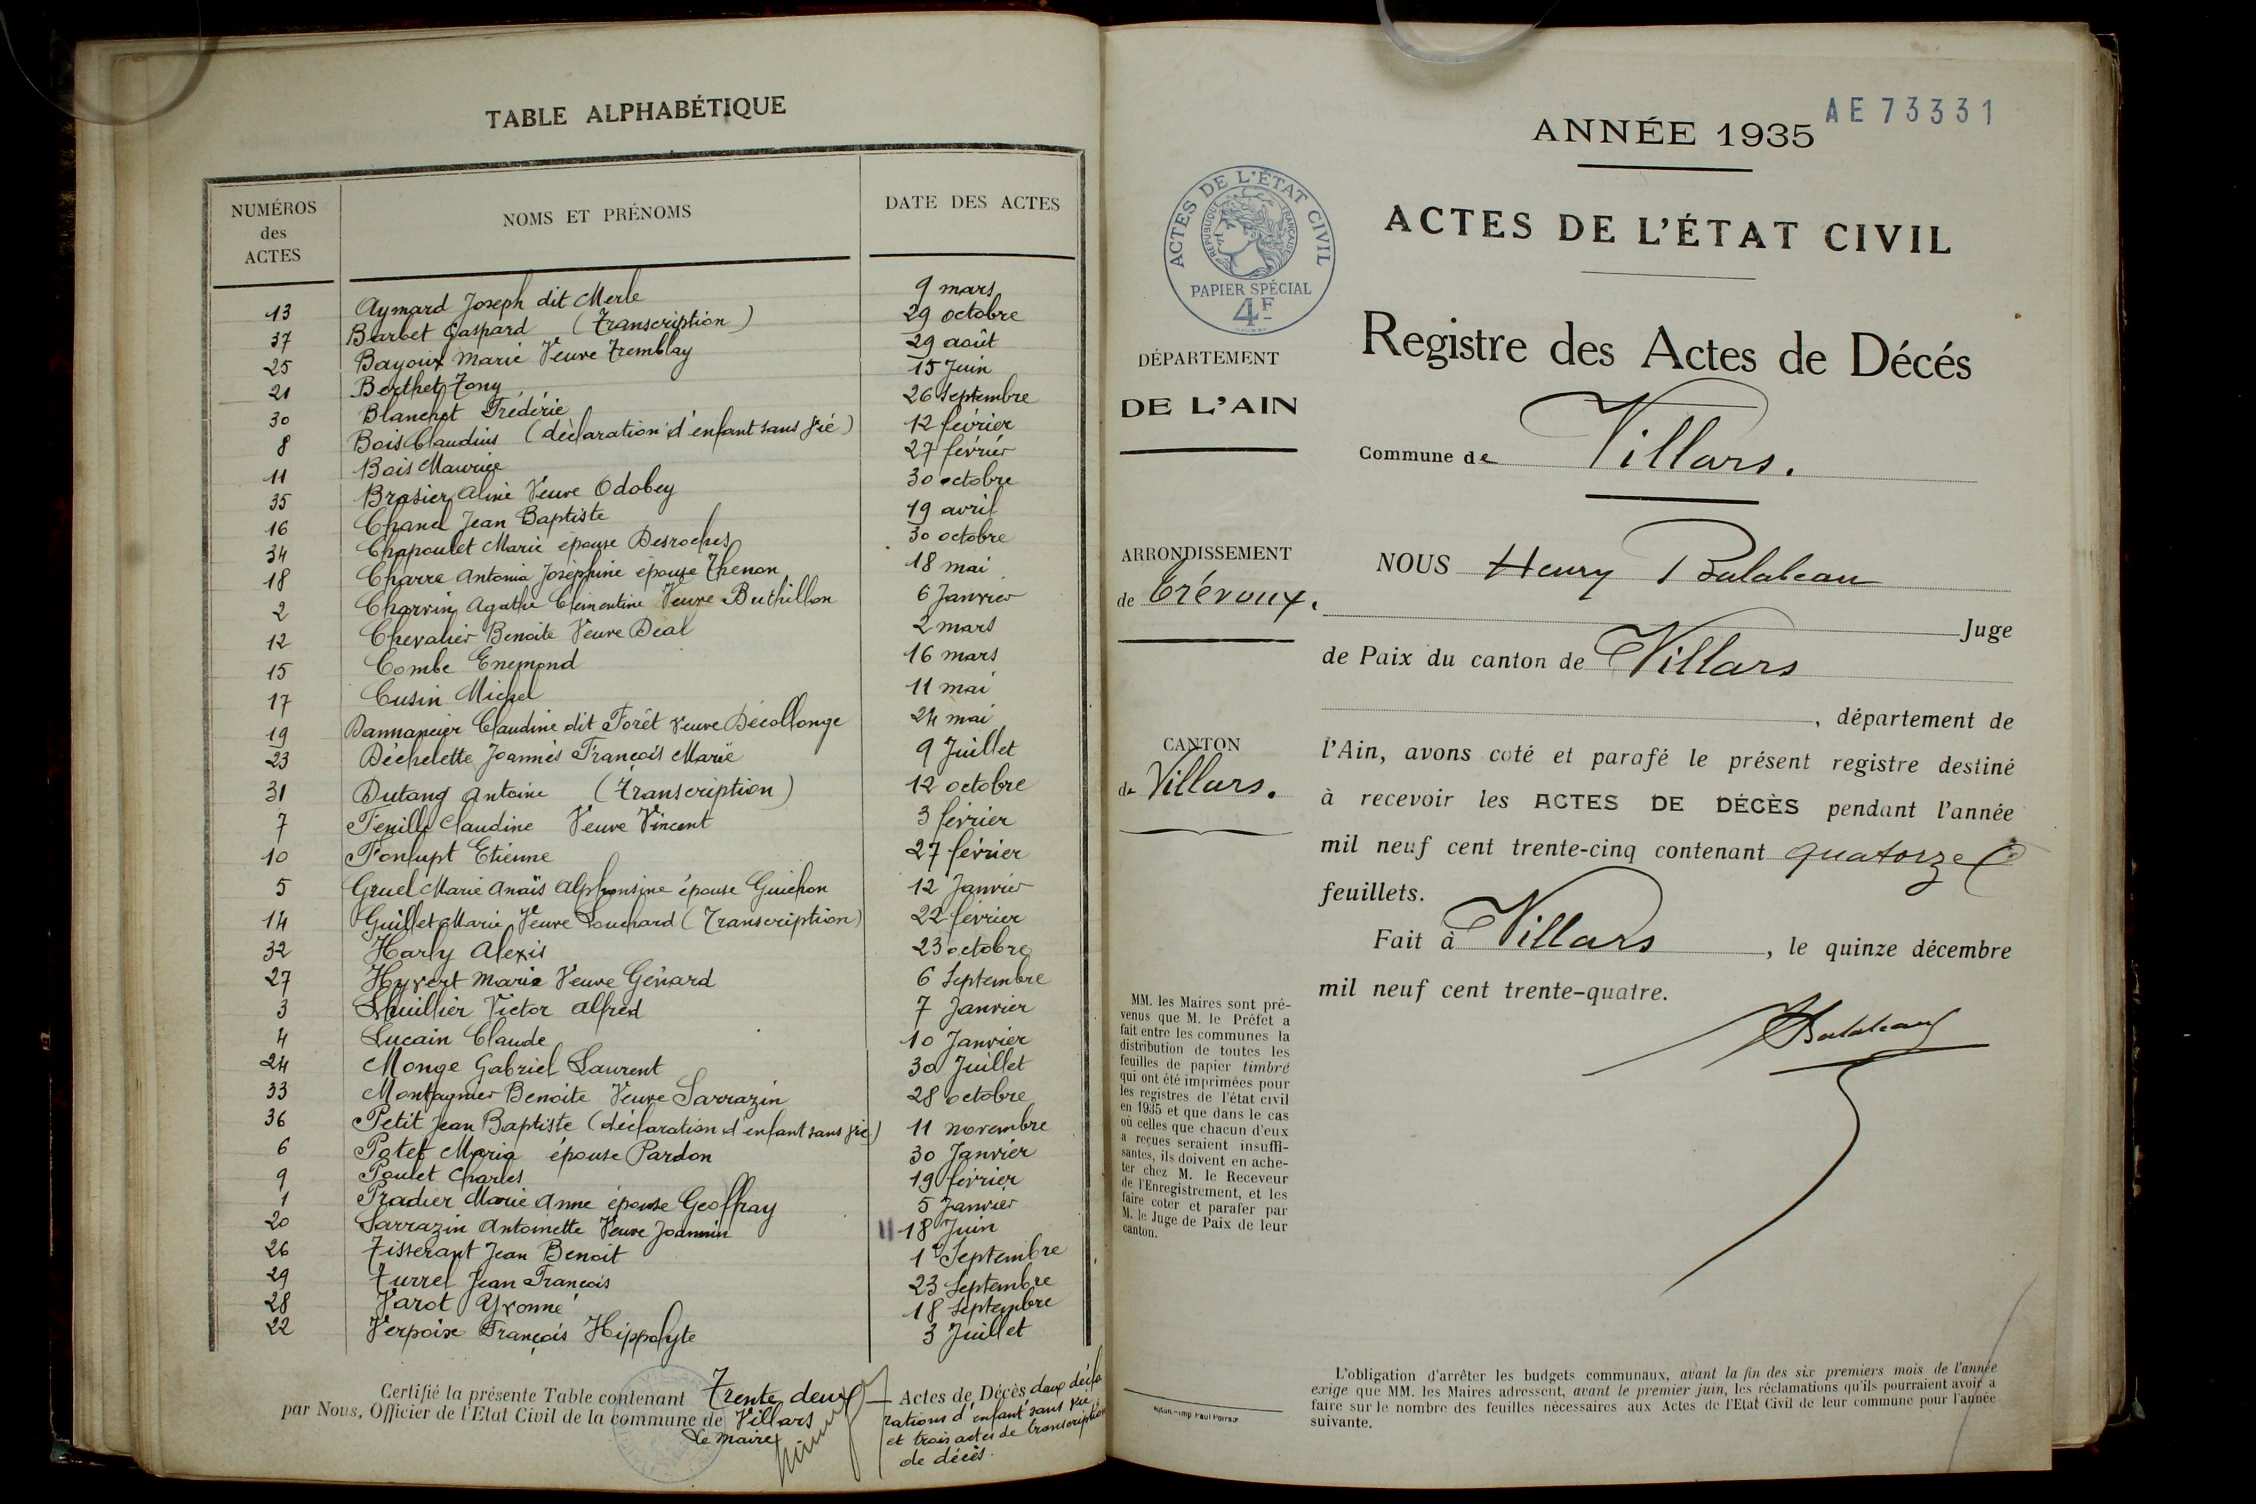 TABLE ALPHABÉTIQUE
NUMÉROS des ACTES
NOMS ET PRÉNOMS
DATE DES ACTES
13 Aymard Joseph dit Merle 9 mars
37 Barbet Gaspard (Transcription) 29 octobre
25 Bayoux Marie Veuve Tremblay 29 août
21 Berthet Tony 15 Juin
30 Blanchot Frédéric 26 Septembre
8 Bois Claudius (déclaration d'enfant sans vie) 12 février
11 Bois Maurice 27 février
35 Brasier Aline Veuve Odobey 30 octobre
16 Chanel Jean Baptiste 19 avril
34 Chapoulet Marie épouse Desroches 30 octobre
18 Charre Antonia Joséphine épouse Thenon 18 mai
2 Charvin Agathe Clémentine Veuve Buthillon 6 Janvier
12 Chevalier Benoite Veuve Déal 2 mars
15 Combe Enemond 16 mars
17 Cusin Michel 11 mai
19 Dannancier Claudine dit Forêt veuve Décollonge 24 mai
23 Déchelette Joannès François Marie 9 Juillet
31 Dutang Antoine (Transcription) 12 octobre
7 Claudine Veuve Vincent 3 février
10 Fonlupt Etienne 27 février
5 Gruel Marie Anaïs Alphonsine épouse Guichon 12 Janvier
14 Guillet Marie Veuve Louchard (Transcription) 22 février
32 Harly Alexis 23 octobre
27 Hyvert Marie Veuve Génard 6 Septembre
3 Lhuillier Victor Alfred 7 Janvier
4 Lucain Claude 10 Janvier
24 Monge Gabriel Laurent 30 Juillet
33 Montagnier Benoite Veuve Sarrazin 28 octobre
36 Petit Jean Baptiste (déclaration d'enfant sans vie) 11 novembre
6 Potet Maria épouse Pardon 30 Janvier
9 Poulet Charles 19 février
1 Pradier Marie Anne épouse Geoffray 5 Janvier
20 Sarrazin Antoinette Veuve Joannin 18 Juin
26 Tisserant Jean Benoit 1er Septembre
29 Turrel Jean François 23 Septembre
28 Varot Yvonne 18 Septembre
22 Verpoix François Hippolyte 3 Juillet
Certifié la présente Table contenant Trente deux Actes de Décès, deux décla
par Nous, Officier de l'Etat Civil de la commune de Villars rations d'enfant sans vie
Le maire et trois actes de transcription
de décès.
ANNÉE 1935
AE 73331
ACTES DE L'ÉTAT CIVIL
RÉPUBLIQUE FRANÇAISE
PAPIER SPÉCIAL
4F
ACTES DE L'ÉTAT CIVIL
Registre des Actes de Décés
DÉPARTEMENT
DE L'AIN
Commune de Villars.
ARRONDISSEMENT
de Trévoux.
CANTON
de Villars.
NOUS Henry Balabeau
Juge
de Paix du canton de Villars
, département de
l'Ain, avons coté et parafé le présent registre destiné
à recevoir les ACTES DE DÉCÈS pendant l'année
mil neuf cent trente-cinq contenant quatorze
feuillets.
Fait à Villars, le quinze décembre
mil neuf cent trente-quatre.
HBalabeau
MM. les Maires sont pré-
venus que M. le Préfet a
fait entre les communes la
distribution de toutes les
feuilles de papier timbré
qui ont été imprimées pour
les registres de l'état civil
en 1935 et que dans le cas
où celles que chacun d'eux
a reçues seraient insuffi-
santes, ils doivent en ache-
ter chez M. le Receveur
de l'Enregistrement, et les
faire coter et parafer par
M. le Juge de Paix de leur
canton.
L'obligation d'arrêter les budgets communaux, avant la fin des six premiers mois de l'année
exige que MM. les Maires adressent, avant le premier juin, les réclamations qu'ils pourraient avoir a
faire sur le nombre des feuilles nécessaires aux Actes de l'Etat Civil de leur commune pour l'année
suivante.